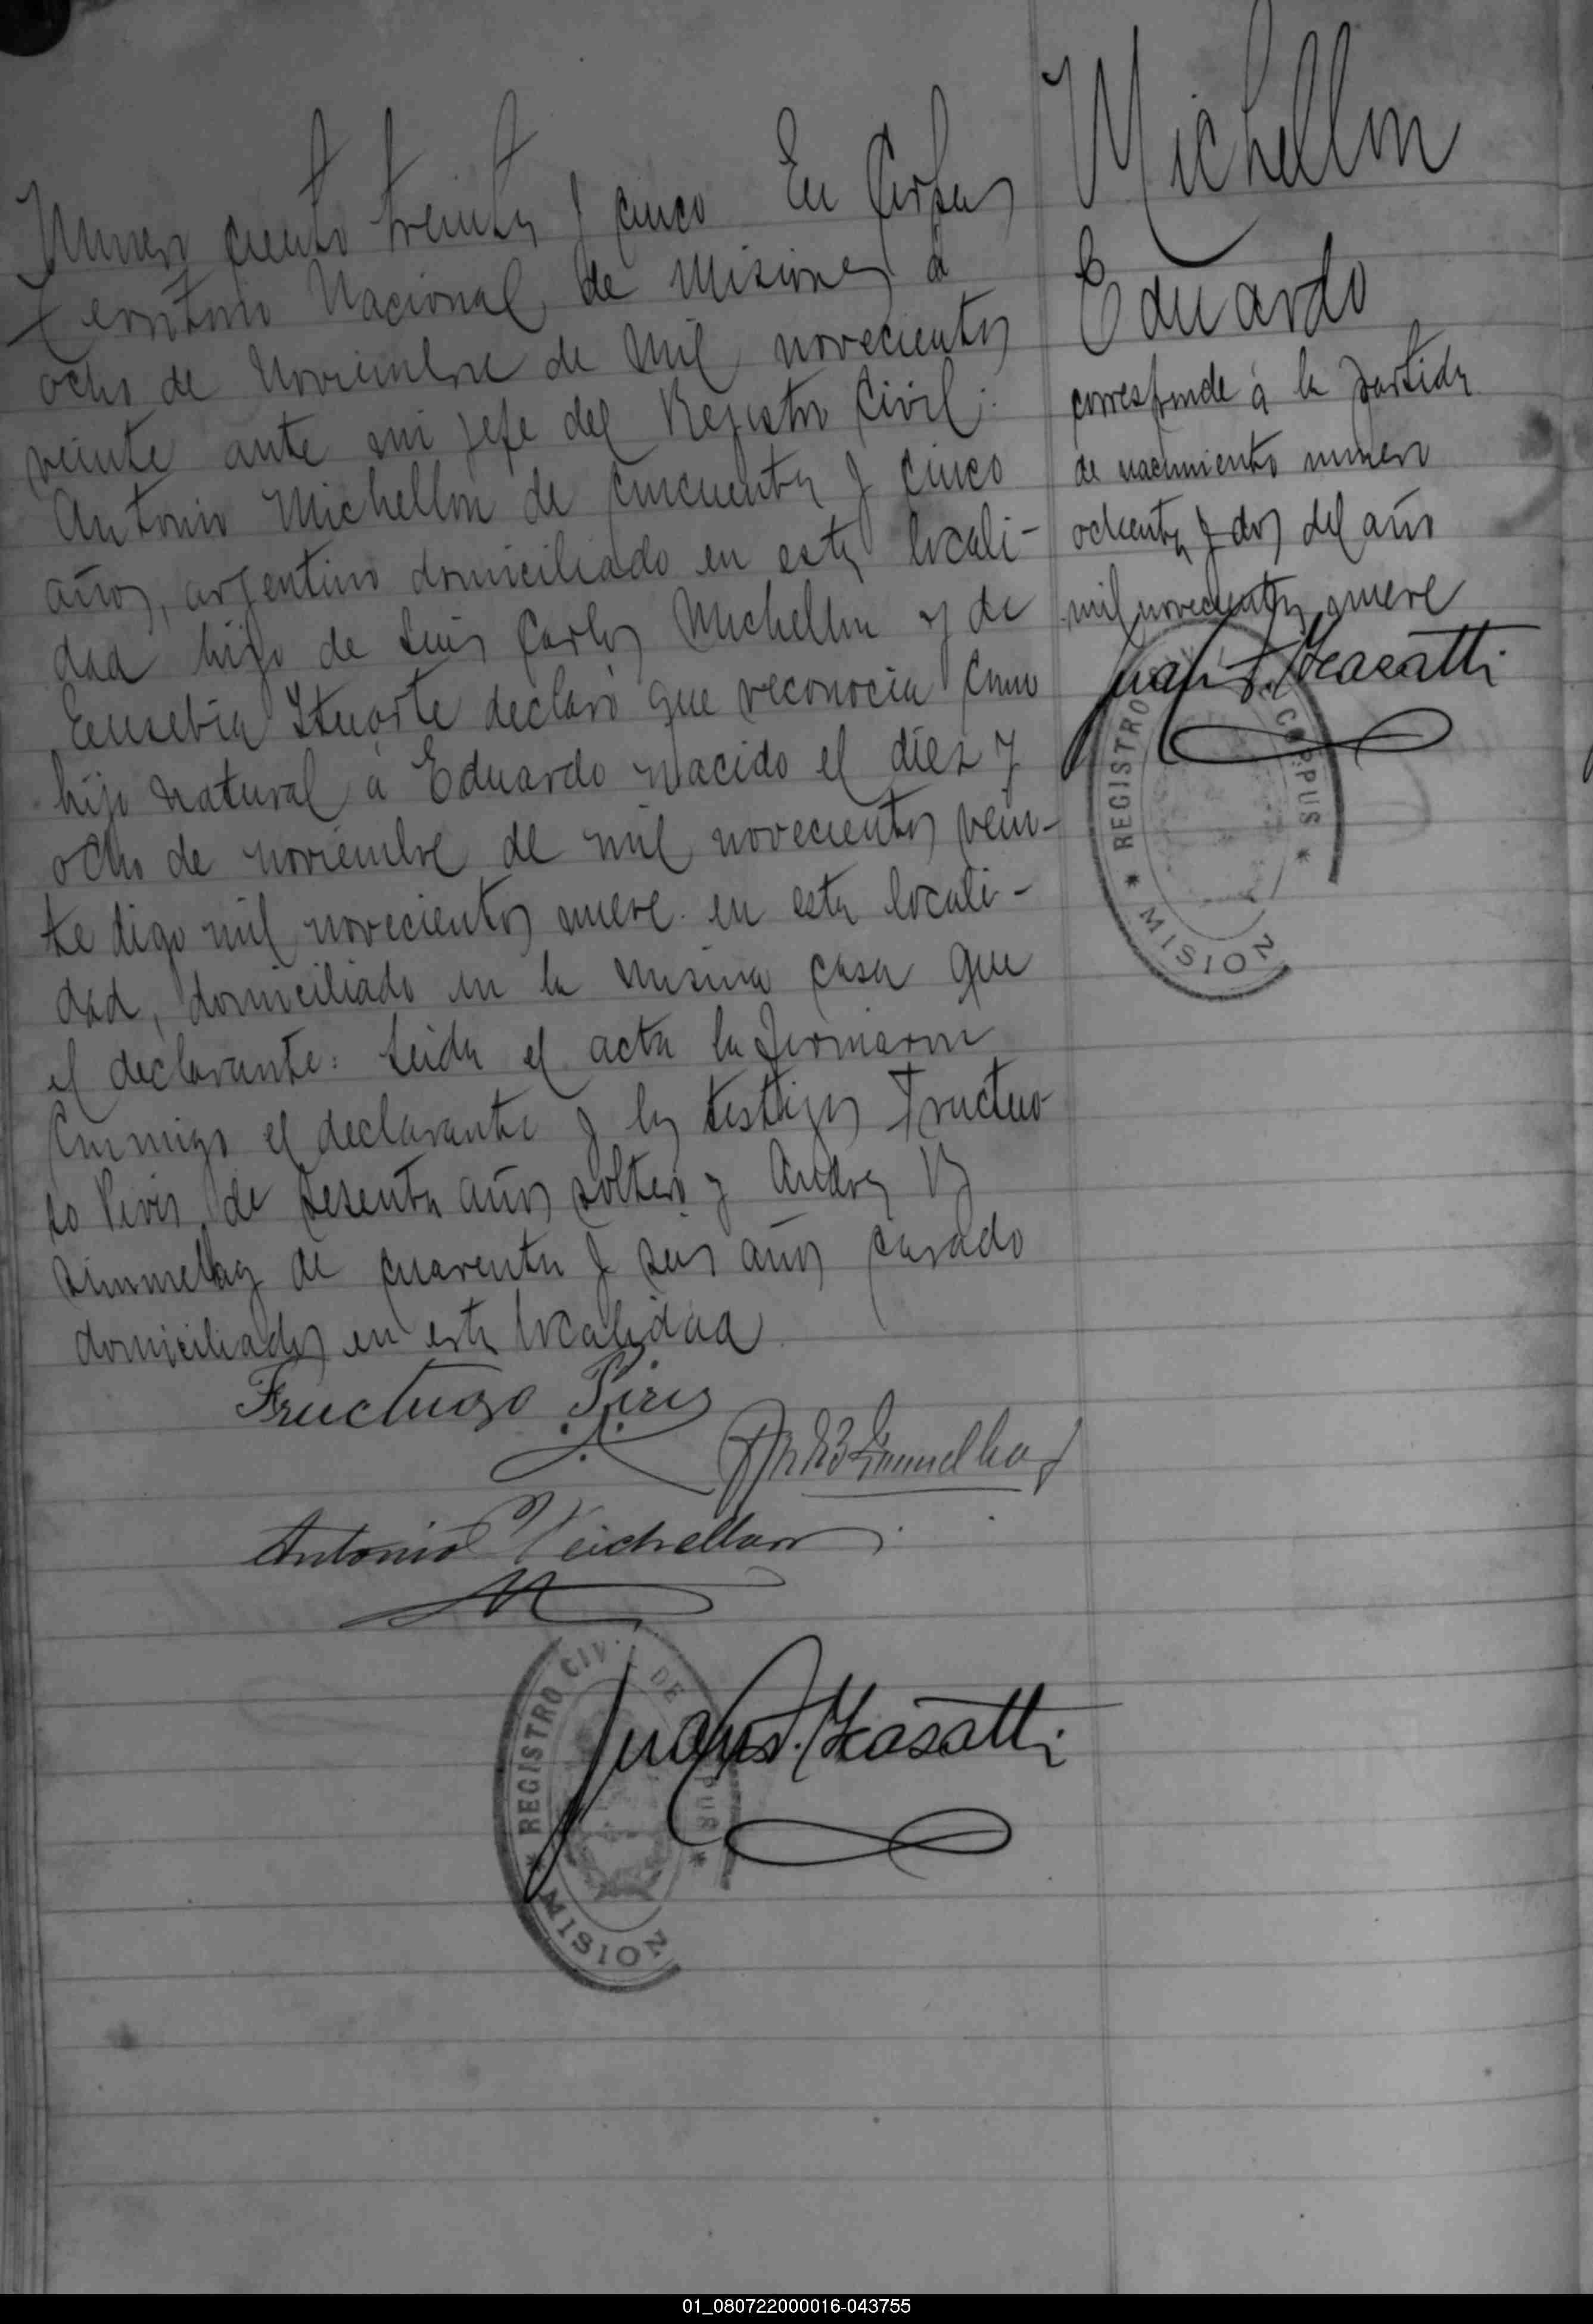 Numero ciento treinta y cinco En Corpus
Territorio Nacional de Misiones á
ocho de Noviembre de mil novecientos
veinte ante mi jefe del Rejistro Civil:
Antonio Michellon de cincuenta y cinco
años, argentino domiciliado en esta locali-
dad hijo de Luis Carlos Michellon y de
Eusebia Ituarte declaró que reconocia como
hijo natural á Eduardo nacido el diez y
ocho de noviembre de mil novecientos vein-
te digo mil novecientos nueve en esta locali-
dad, domiciliado en la misma casa que
el declarante: Leida el acta la firmaron
conmigo el declarante y los testigos Fructuo
so Piris de sesenta años soltero y Andres B
Simmelhag de cuarenta y seis años casado
domiciliados en esta localidad
Fructuoso Piris
Simmelhag
Antonio Meichellon
REGISTRO CIVIL DE CORPUS
* MISION
Juan
Michellon
Eduardo
corresponde á la partida
de nacimiento numero
ochenta y dos del año
mil novecientos nueve
Juan
REGISTRO CIVIL CORPUS
* MISION *
01_080722000016-043755